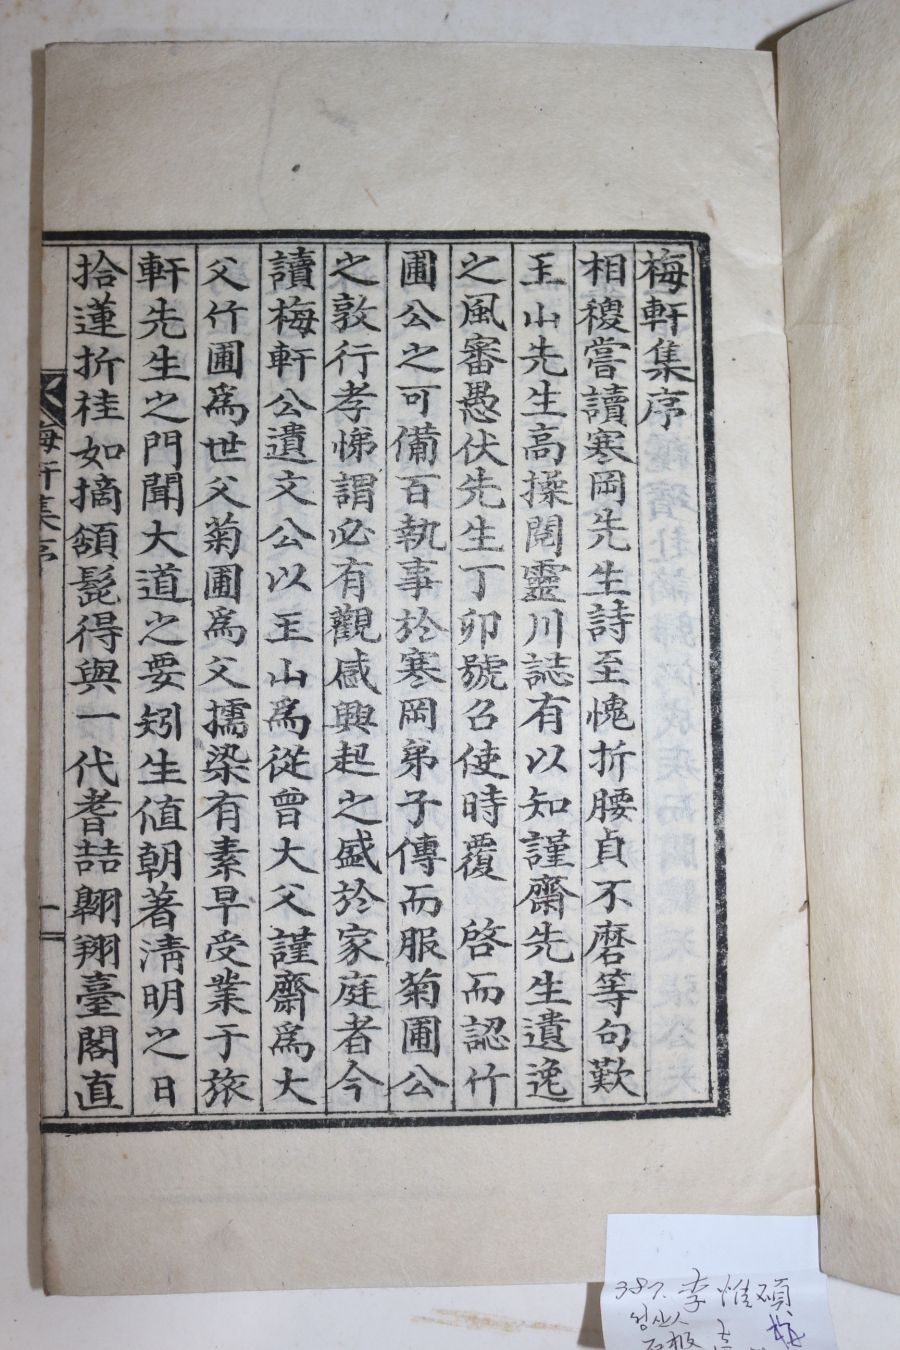 梅軒集序
相稷嘗讀寒岡先生詩至愧折腰貞不磨等句歎
王山先生高操閱靈川誌有以知謹齋先生遺逸
之風審愚伏先生丁卯號召使時覆 啓而認竹
圃公之可備百執事於寒岡弟子傳而服菊圃公
之敦行孝悌謂必有觀感興起之盛於家庭者今
讀梅軒公遺文公以王山爲從曾大父謹齋爲大
父竹圃爲世父菊圃爲父擩染有素早受業于旅
軒先生之門聞大道之要矧生値朝著淸明之日
拾蓮折桂如摘頷髭得與一代耆喆翺翔臺閣直
梅軒集序
一
387. 李惟碩